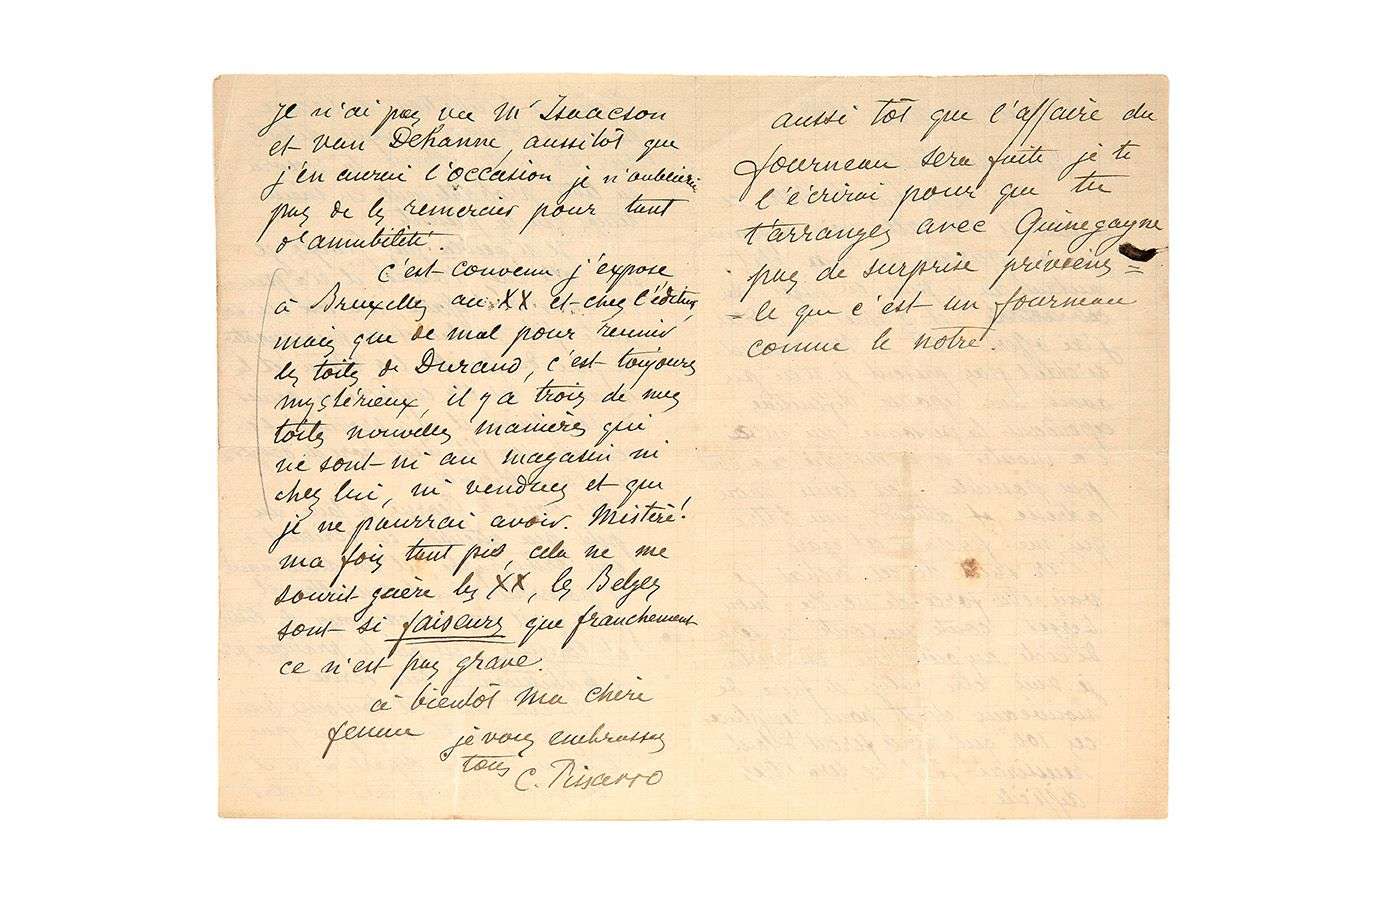 je n'ai pas vu Mr Isaacson
et van Dehanne, aussitôt que
j'en aurai l'occasion je n'oublierai
pas de les remercier pour tant
d'amabilité.
c'est convenu j'expose
à Bruxelles au XX et chez l'éditeur,
mais que de mal pour réunir
les toiles de Durand, c'est toujours
mystérieux, il y a trois de mes
toiles nouvelles manières qui
ne sont ni au magasin ni
chez lui, ni vendues et que
je ne pourrai avoir. Mistère!
ma fois tant pis, cela ne me
sourit guère les XX, les Belges
sont si faiseurs que franchement
ce n'est pas grave.
à bientôt ma chère
femme je vous embrasse
tous
C. Pissarro
aussi tôt que l'affaire du
fourneau sera faite je te
l'écrirai pour que tu
t'arranges avec Quinegagne
pas de surprise préviens =
= le que c'est un fourneau
comme le notre.